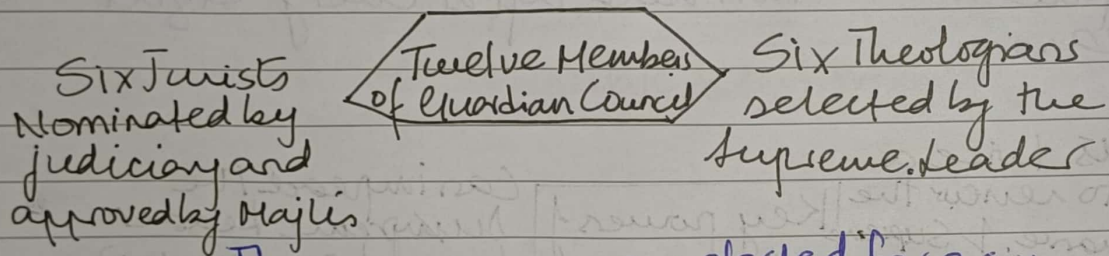 Six Jurists
Nominated by
judiciary and
approved by Majlis
Twelve Members
of Guardian Council
Six Theologians
selected by the
Supreme Leader